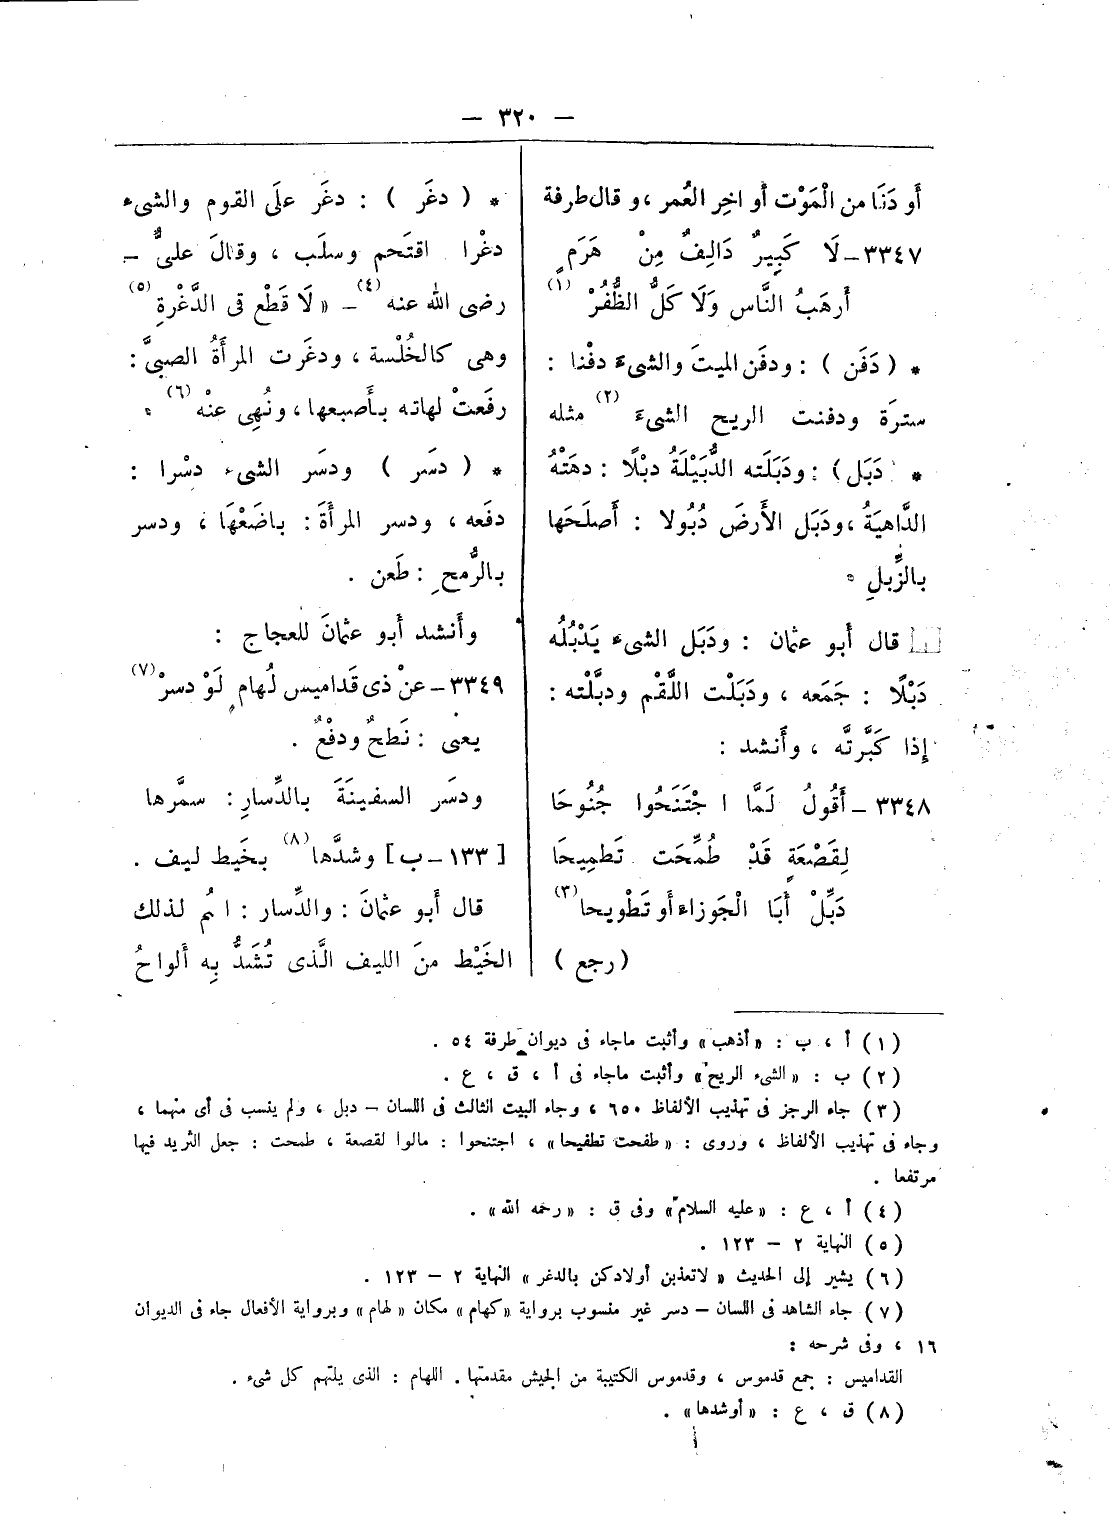 — ٣٢٠ —
أو دَنَا من الْمَوْت أو اخِر العُمر ، و قال طرفة
٣٣٤٧ – لَا كَبِيرٌ دَالِفٌ مِنْ هَرَمٍ
أَرهَبُ النَّاس وَلَا كَلُّ الظُّفُرْ (١)
* ( دَفَن ) : ودفَن الميتَ والشىءَ دفْنا :
سترَة ودفنت الريح الشىءَ (٢) مثله
* ( دَبَل ) : ودَبَلَته الدُّبَيْلَةُ دبْلًا : دهَتْهُ
الدَّاهيَةُ ، ودَبَل الأَرضَ دُبُولا : أَصلَحَها
بالزِّبلِ .
[ ] قال أَبو عثمان : ودَبَل الشىء يَدْبُلُه
دَبْلًا : جَمَعه ، ودَبَلْت اللَّقْم ودبَّلْته :
إِذا كَبَّرتَّه ، وأَنشد :
٣٣٤٨ – أَقُولُ لَمَّا ا جْتَنَحُوا جُنُوحَا
لِقَصْعَةٍ قَدْ طُمِّحَت تَطمِيحَا
دَبِّلْ أَبَا الْجَوزاءِ أو تَطْويحا (٣)
( رجع )
* ( دغَر ) : دغَر علَى القوم والشىء
دغْرا اقتَحم وسلَب ، وقالَ علىٌّ –
رضى الله عنه (٤) – « لَا قَطْع فى الدَّغْرةِ (٥)
وهى كالخُلْسة ، ودغَرت المرأَةُ الصبىَّ :
رفَعتْ لهاته بأَصبعها ، ونُهِى عنْه (٦) .
* ( دسَر ) ودسَر الشىء دسْرا :
دفَعه ، ودسر المرأَةَ : باضَعْهَا ، ودسر
بالرُّمحِ : طَعن .
وأَنشد أَبو عثمانَ للعجاج :
٣٣٤٩ – عنْ ذى قَداميس لُهامٍ لَوْ دسرْ (٧)
يعنى : نَطحٌ ودفْعٌ .
ودسَر السفينَةَ بالدِّسارِ : سمَّرها
[ ١٣٣ – ب ] وشدَّها (٨) بخَيط ليف .
قال أَبو عثمانَ : والدِّسار : ا سُم لذلك
الخَيْط منَ الليف الَّذى تُشَدُّ بِه أَلواحُ
(١) أ ، ب : «أذهب» وأثبت ماجاء فى ديوان طرفة ٥٤ .
(٢) ب : « الشىء الريح» وأثبت ماجاء فى أ ، ق ، ع .
(٣) جاء الرجز فى تهذيب الألفاظ ٦٥٠ ، وجاء البيت الثالث فى اللسان – دبل ، ولم ينسب فى أى منهما ،
وجاء فى تهذيب الألفاظ ، وروى : « طفحت تطفيحا» ، اجتنحوا : مالوا لقصعة ، طمحت : جعل الثريد فيها
مرتفعا .
(٤) أ ، ع : «عليه السلام» وفى ق : «رحمه الله» .
(٥) النهاية ٢ – ١٢٣ .
(٦) يشير إلى الحديث « لاتعذبن أولادكن بالدغر » النهاية ٢ – ١٢٣ .
(٧) جاء الشاهد فى اللسان – دسر غير منسوب برواية «كهام» مكان «لهام» وبرواية الأفعال جاء فى الديوان
١٦ ، وفى شرحه :
القداميس : جمع قدموس ، وقدموس الكتيبة من الجيش مقدمتها . اللهام : الذى يلتهم كل شىء .
(٨) ق ، ع : «أوشدها» .